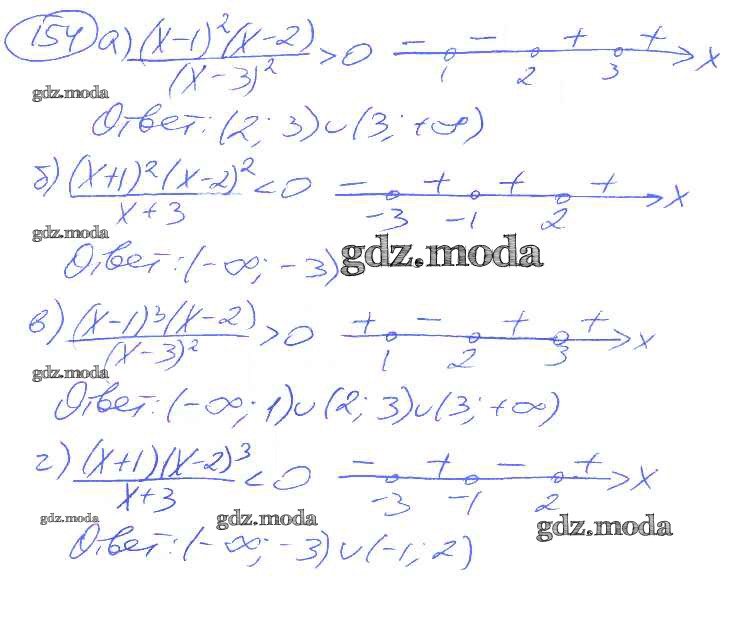 154 а) (x-1)²(x-2)/(x-3)² > 0 - - + + 1 2 3 x
gdz.moda
Ответ: (2; 3)∪(3; +∞)
б) (x+1)²(x-2)²/x+3 < 0 - + + + -3 -1 2 x
gdz.moda
Ответ: (-∞; -3)
gdz.moda
в) (x-1)³(x-2)/(x-3)² > 0 + - + + 1 2 3 x
gdz.moda
Ответ: (-∞; 1)∪(2; 3)∪(3; +∞)
г) (x+1)(x-2)³/x+3 < 0 - + - + -3 -1 2 x
gdz.moda
gdz.moda
gdz.moda
Ответ: (-∞; -3)∪(-1; 2)